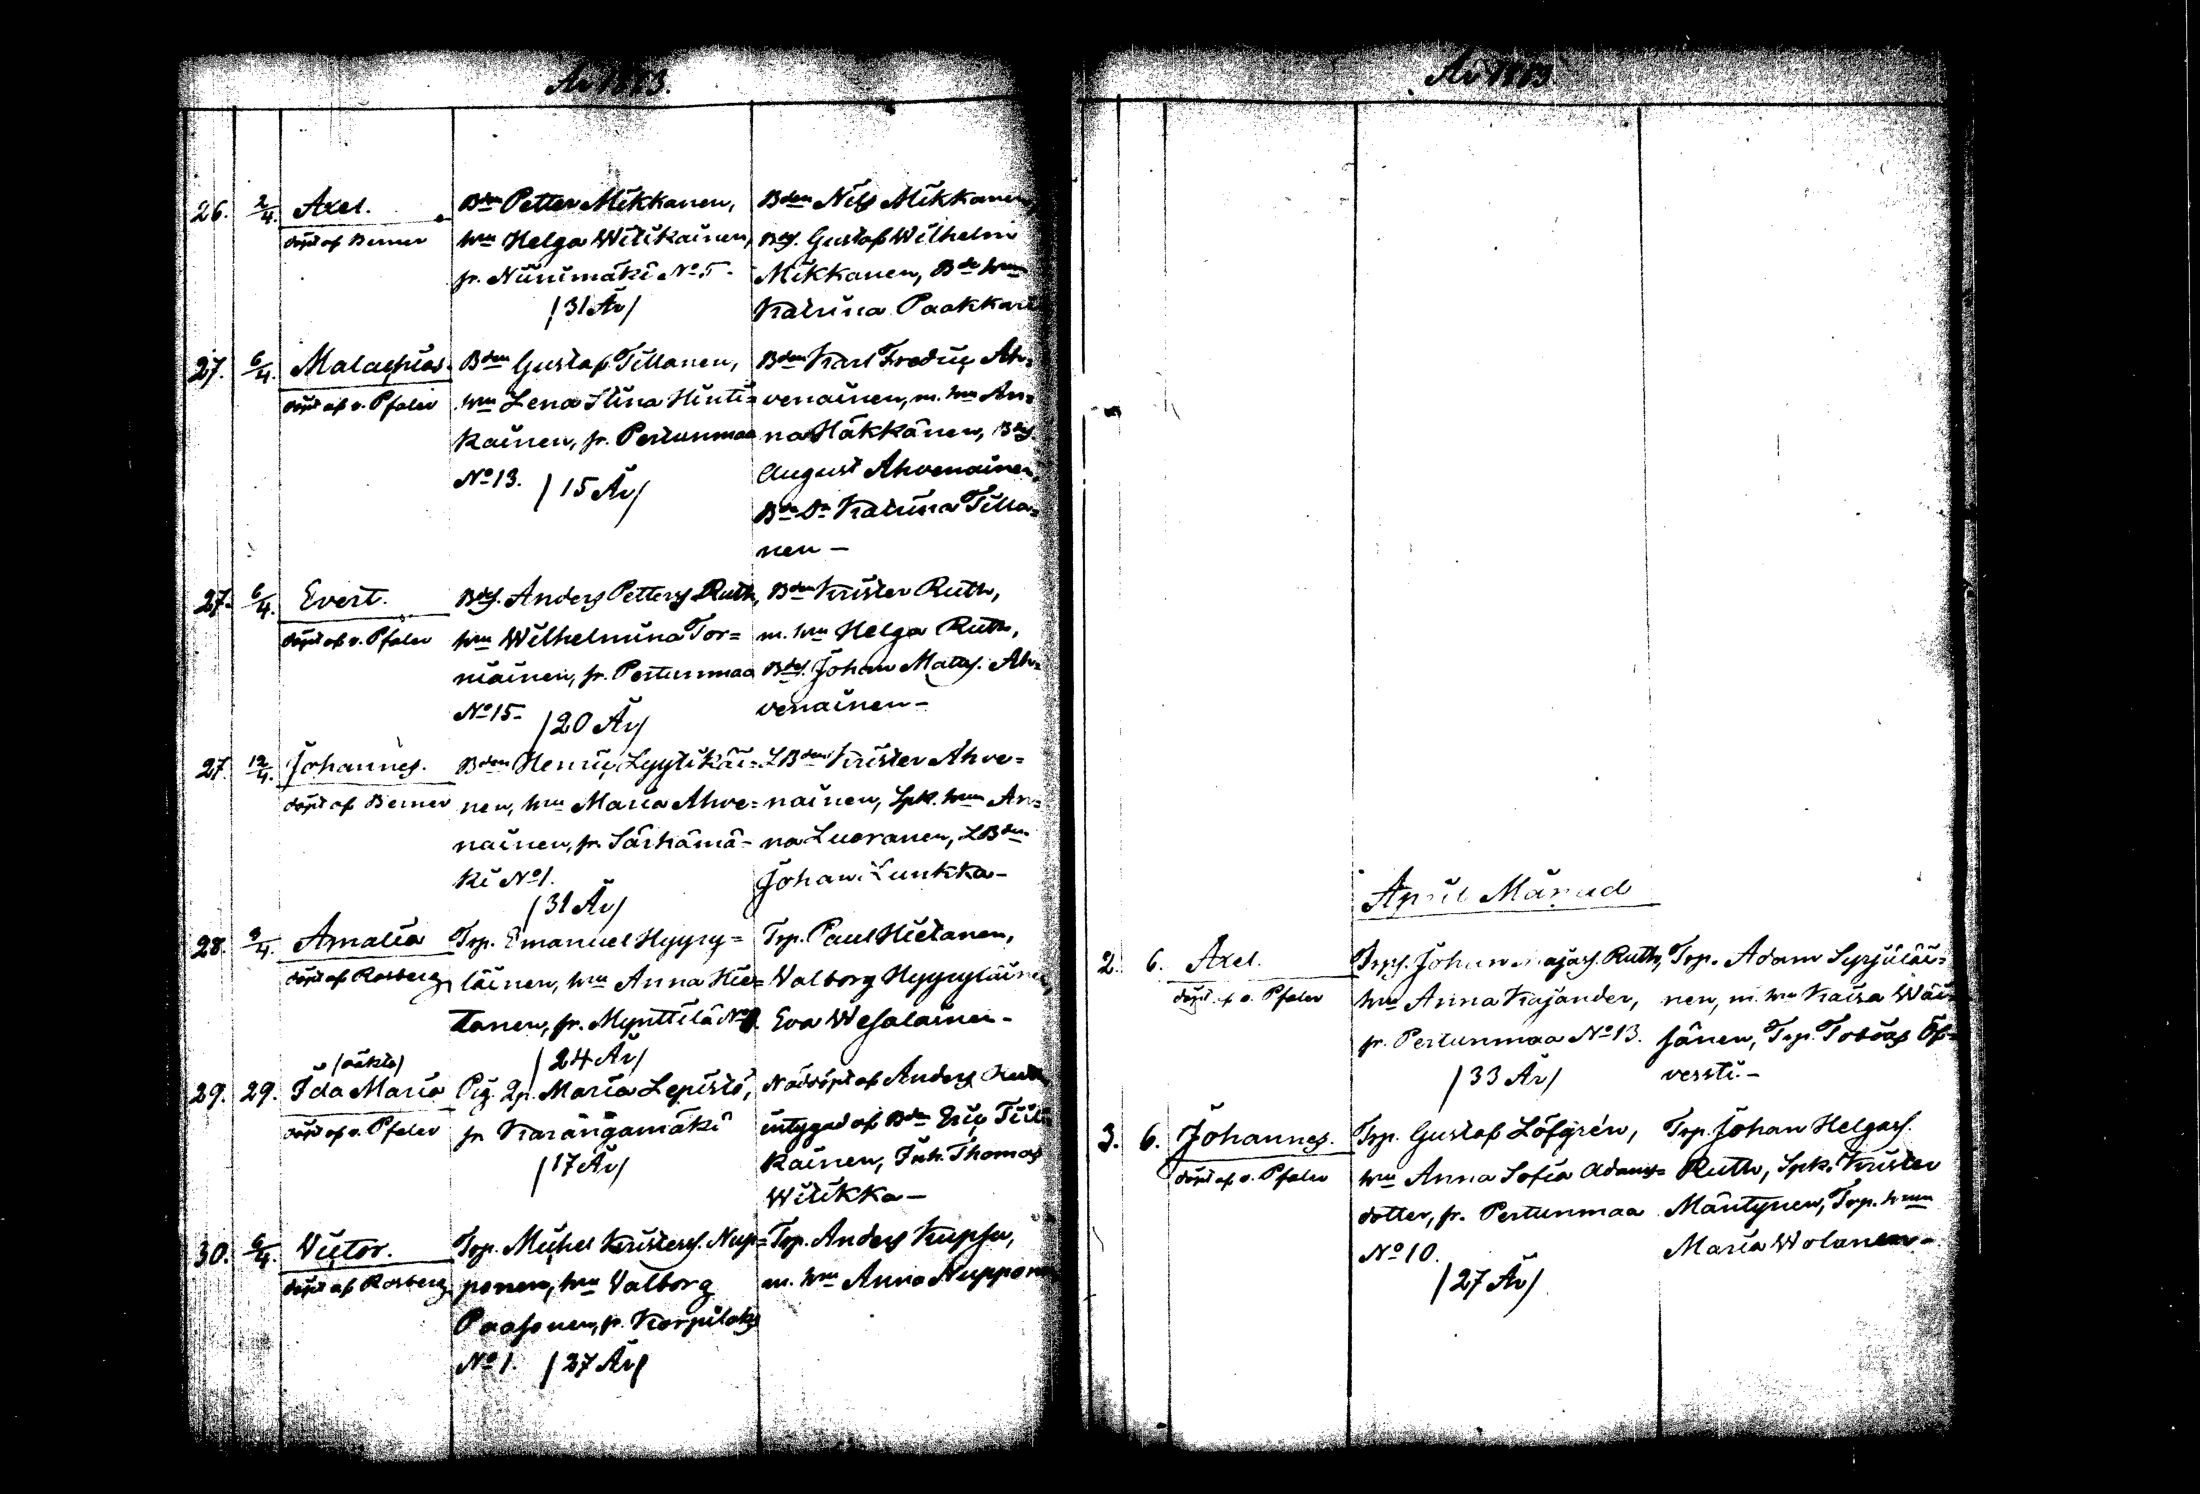 År 1883.
26. 2/4. Axel.
döpt af Berner
Bden Petter Mikkanen,
hm Helga Witikainen,
fr. Niinimäki No 5.
/31 År/
Bden Nils Mikkanen
Bdes. Gustaf Wilhelm
Mikkanen, Bde hm
Katrina Paakkari
27. 6/4. Malachias.
döpt af v. Pfaler
Bden Gustaf Tillanen,
hm Lena Stina Hinti=
kainen, fr. Pertunmaa
No 13. /15 År/
Bden Karl Fredric Ah=
venainen, m. hm An=
na Häkkänen, Bds.
August Ahvenainen,
Bde Dr Katrina Tilla=
nen —
27. 6/4. Evert.
döpt af v. Pfaler
Bds. Anders Petters. Ruth,
hm Wilhelmina Tor=
niainen, fr. Pertunmaa
No 15. /20 År/
Bden Krister Ruth,
m. hm Helga Ruth,
Bds. Johan Matts. Ah=
venainen —
27. 12/4. Johannes.
döpt af Berner
Bden Henric Lyytikäi=
nen, hm Maria Ahve=
nainen, fr. Särkämä=
ki No 1.
/31 År/
LBden Krister Ahve=
nainen, Spk. hm An=
na Luoranen, LBden
Johan Lunkka —
28. 9/4. Amalia
döpt af Rosberg
Trp. Emanuel Hyyry=
läinen, hm Anna Hie=
tanen, fr. Mynttilä No
/24 År/
Trp. Paul Hietanen,
Valborg Hyyryläinen,
Eva Wesalainen —
/oäkta/
29. 29. Ida Maria
döpt af v. Pfaler
Pig. Maria Lepistö,
fr Karangamäki
/17 År/
Nöddöpt af Anders
intygad af Bden Eric Tiili=
kainen, Inh. Thomas
Witikka —
30. 6/4. Victor.
döpt af Rosberg
Trp. Michel Kristers. Nup=
ponen, hm Valborg
Paasonen, fr. Korpilaks
No 1. /27 År/
Trp. Anders Kupsu,
m. hm Anna Nupponen
År 1883.
April Månad
2. 6. Axel.
döpt af v. Pfaler
Trps. Johan Majas. Ruth,
hm Anna Kajander,
fr. Pertunmaa No 13.
/33 År/
Trp. Adam Syrjäläi=
nen, m. hm Kaisa Wäi=
sänen, Trp. Tobias Öf=
versti. —
3. 6. Johannes.
döpt af v. Pfaler
Trp. Gustaf Löfgrén,
hm Anna Sofia Adams=
dotter, fr. Pertunmaa
No 10.
/27 År/
Trp. Johan Helgas.
Ruth, Spk. Krister
Mäntynen, Trp. hm
Maria Wolanen —